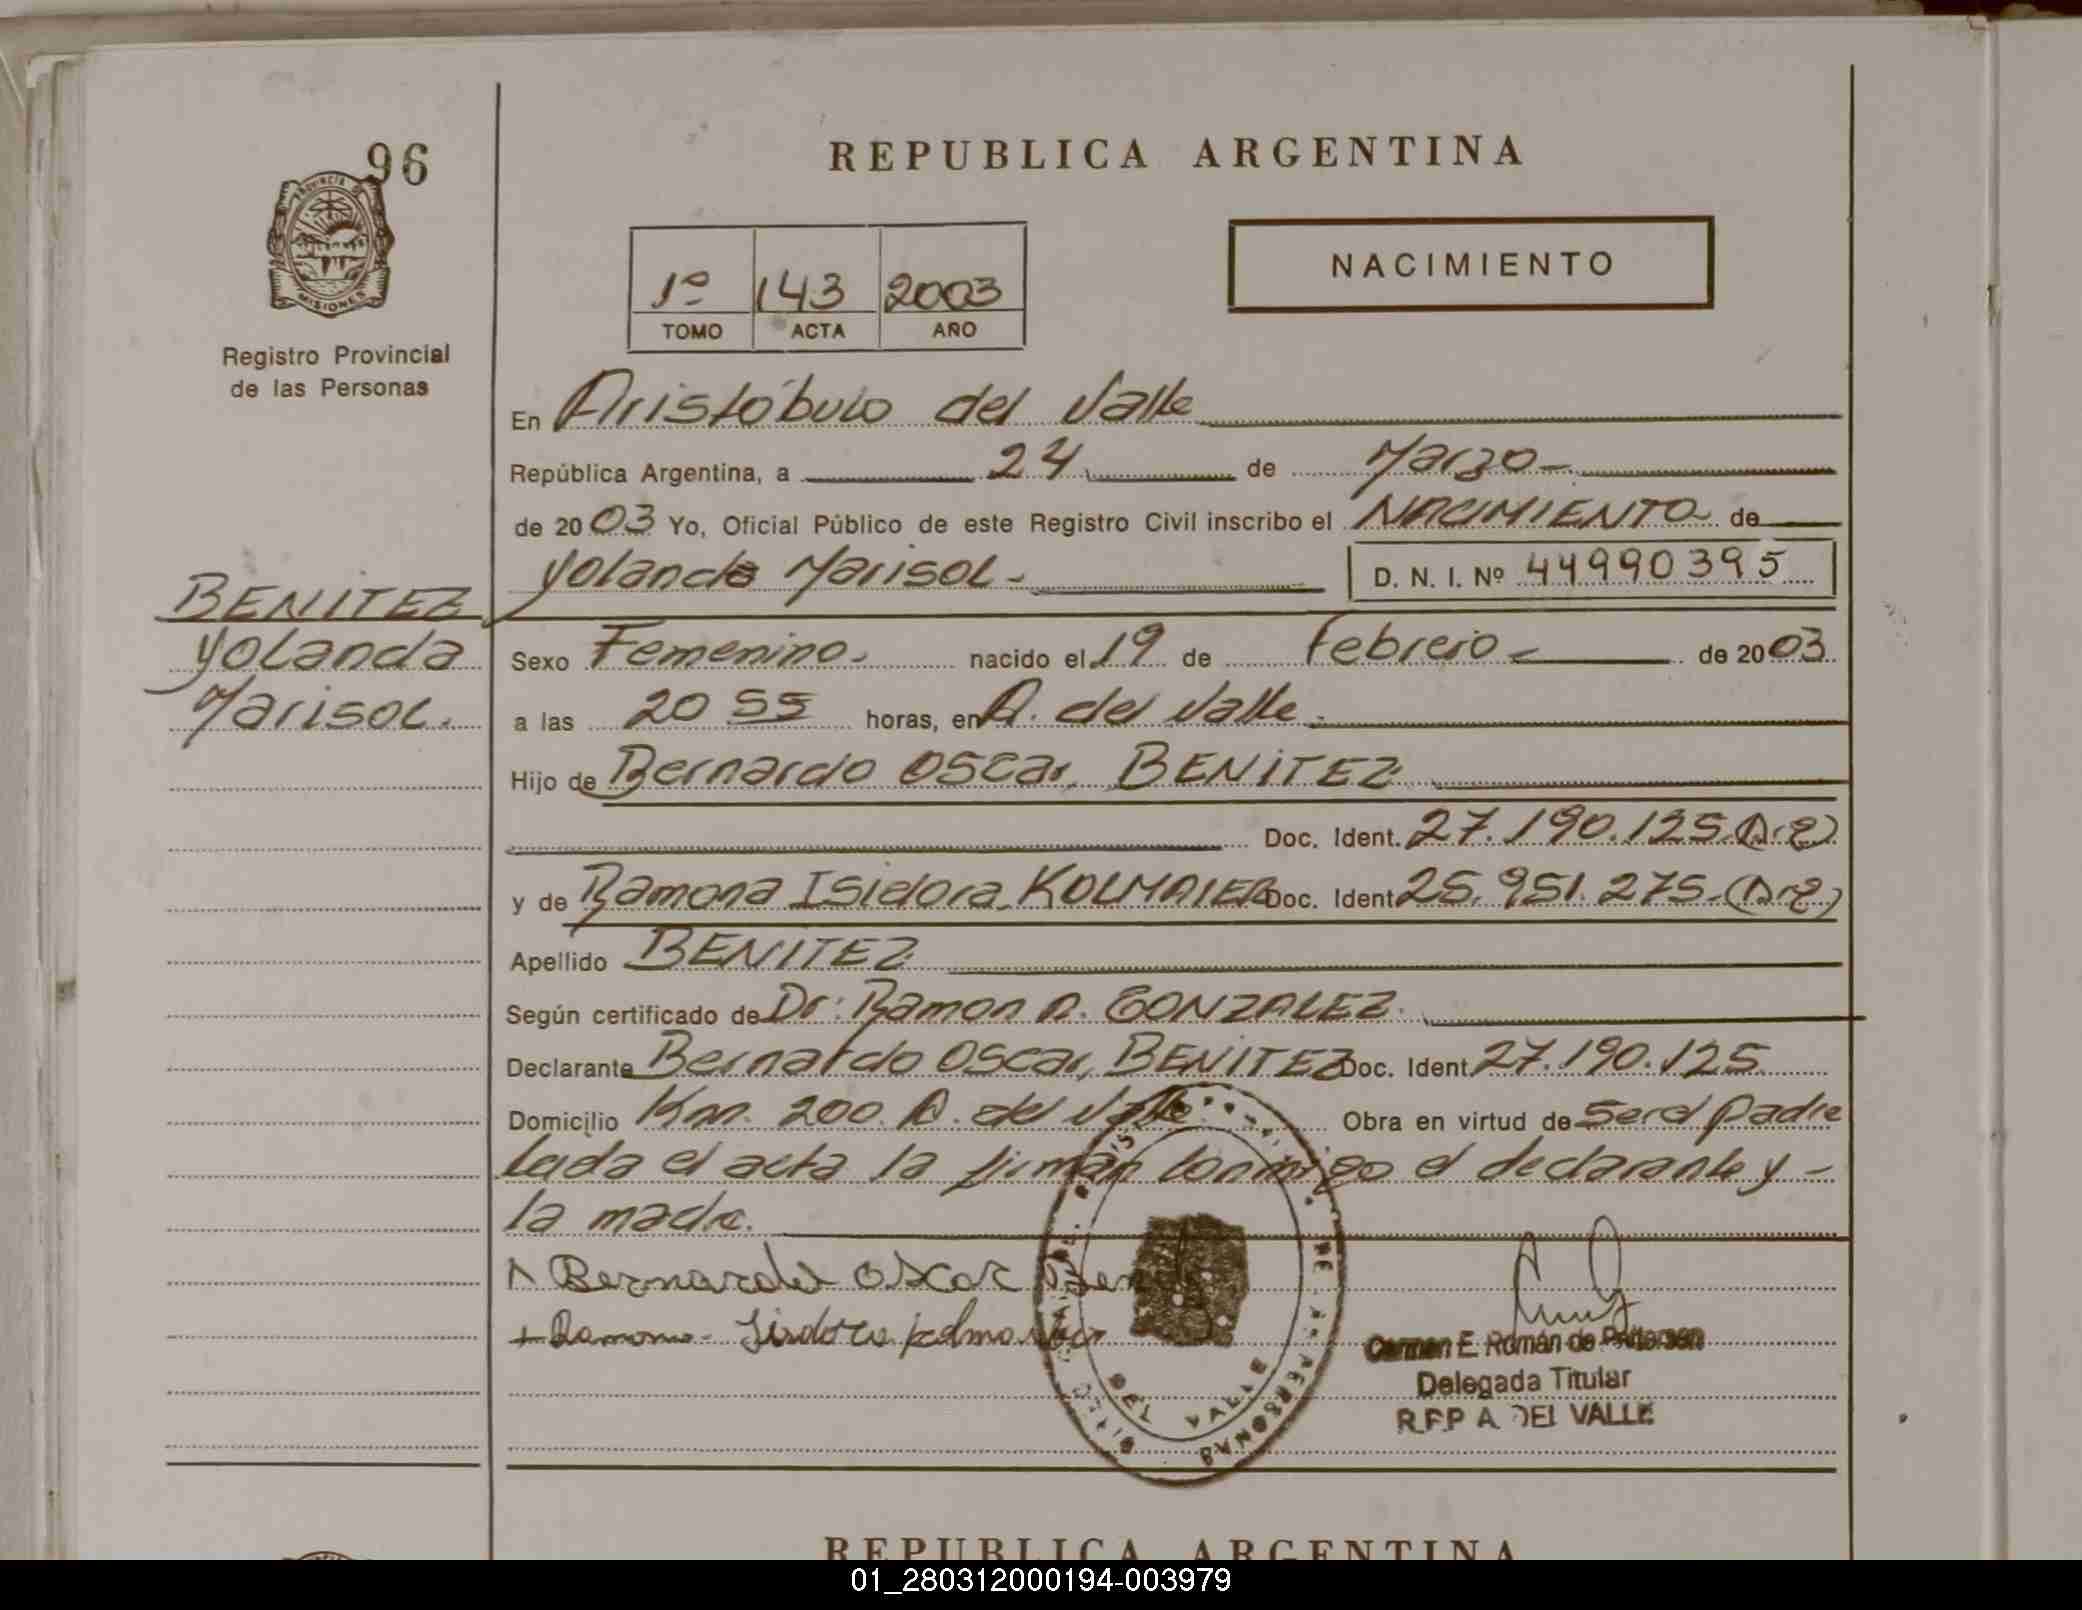 96
REPUBLICA ARGENTINA
PROVINCIA DE
MISIONES
Registro Provincial
de las Personas
1º 143 2003
TOMO ACTA AÑO
NACIMIENTO
En Aristóbulo del Valle
República Argentina, a 24 de Marzo
de 2003 Yo, Oficial Público de este Registro Civil inscribo el NACIMIENTO de
Yolanda Marisol.
D. N. I. Nº 44990395
BENITEZ
Yolanda
Marisol.
Sexo Femenino. nacido el 19 de Febrero de 2003
a las 20 55 horas, en A. del Valle.
Hijo de Bernardo Oscar, BENITEZ
Doc. Ident. 27.190.125.
y de Ramona Isidora KOLMAIER Doc. Ident. 25.951.275.
Apellido BENITEZ
Según certificado de Dr: Ramon A. GONZALEZ.
Declarante Bernardo Oscar, BENITEZ Doc. Ident. 27.190.125
Domicilio Km. 200. A. del Valle Obra en virtud de Ser el padre
Leida el acta la firman conmigo el declarante y
la madre.
Bernardo Oscar
Ramona
DEL VALLE
PERSONAS
Carmen E. Román de
Delegada Titular
R.P.P A. DEL VALLE
REPUBLICA ARGENTINA
01_280312000194-003979